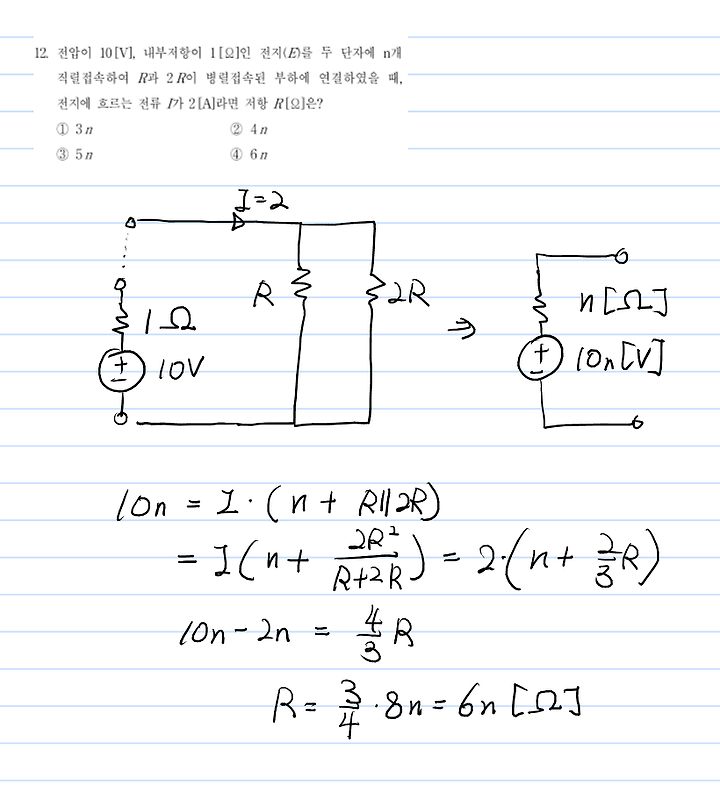 12. 전압이 10[V], 내부저항이 1[Ω]인 전지(E)를 두 단자에 n개
직렬접속하여 R과 2R이 병렬접속된 부하에 연결하였을 때,
전지에 흐르는 전류 I가 2[A]라면 저항 R[Ω]은?
① 3n ② 4n
③ 5n ④ 6n
I=2
R 2R
1Ω
10V
⇒
n[Ω]
10n[V]
10n = I·(n + R||2R)
= I(n + 2R²/(R+2R)) = 2·(n + 2/3 R)
10n - 2n = 4/3 R
R = 3/4 · 8n = 6n [Ω]